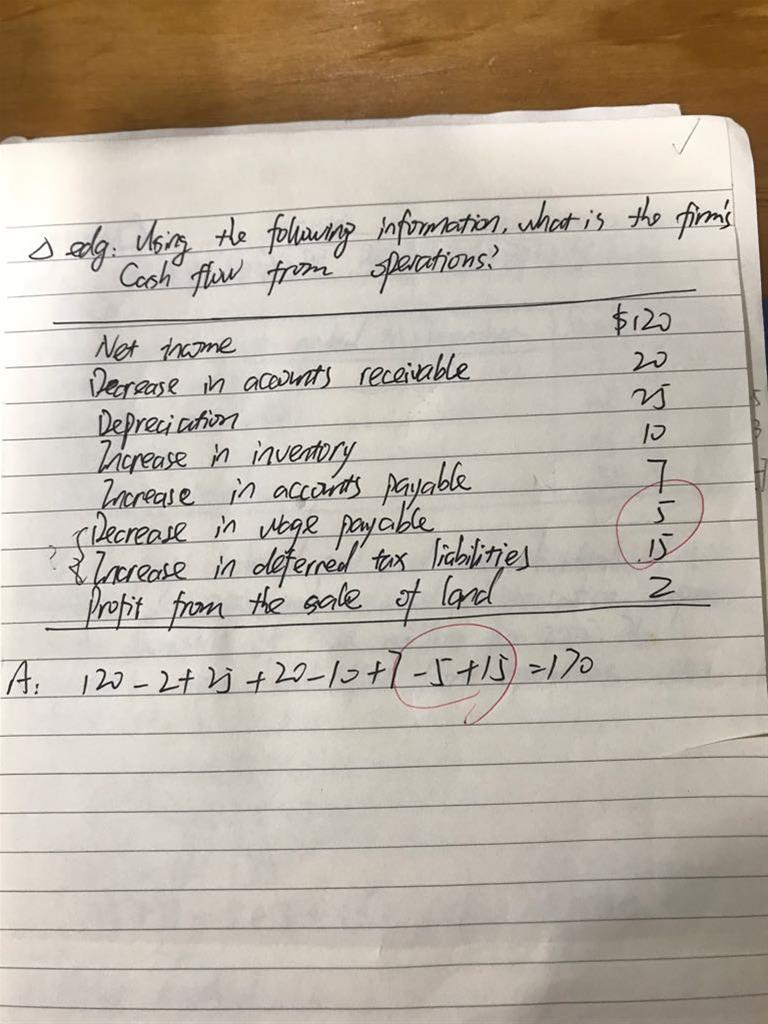 △ edg: Using the following information, what is the firm's
Cash flow from operations?
Net income $120
Decrease in accounts receivable 20
Depreciation 25
Increase in inventory 10
Increase in accounts payable 7
Decrease in wage payable 5
? Increase in deferred tax liabilities 15
Profit from the sale of land 2
A: 120-2+25+20-10+7-5+15=170